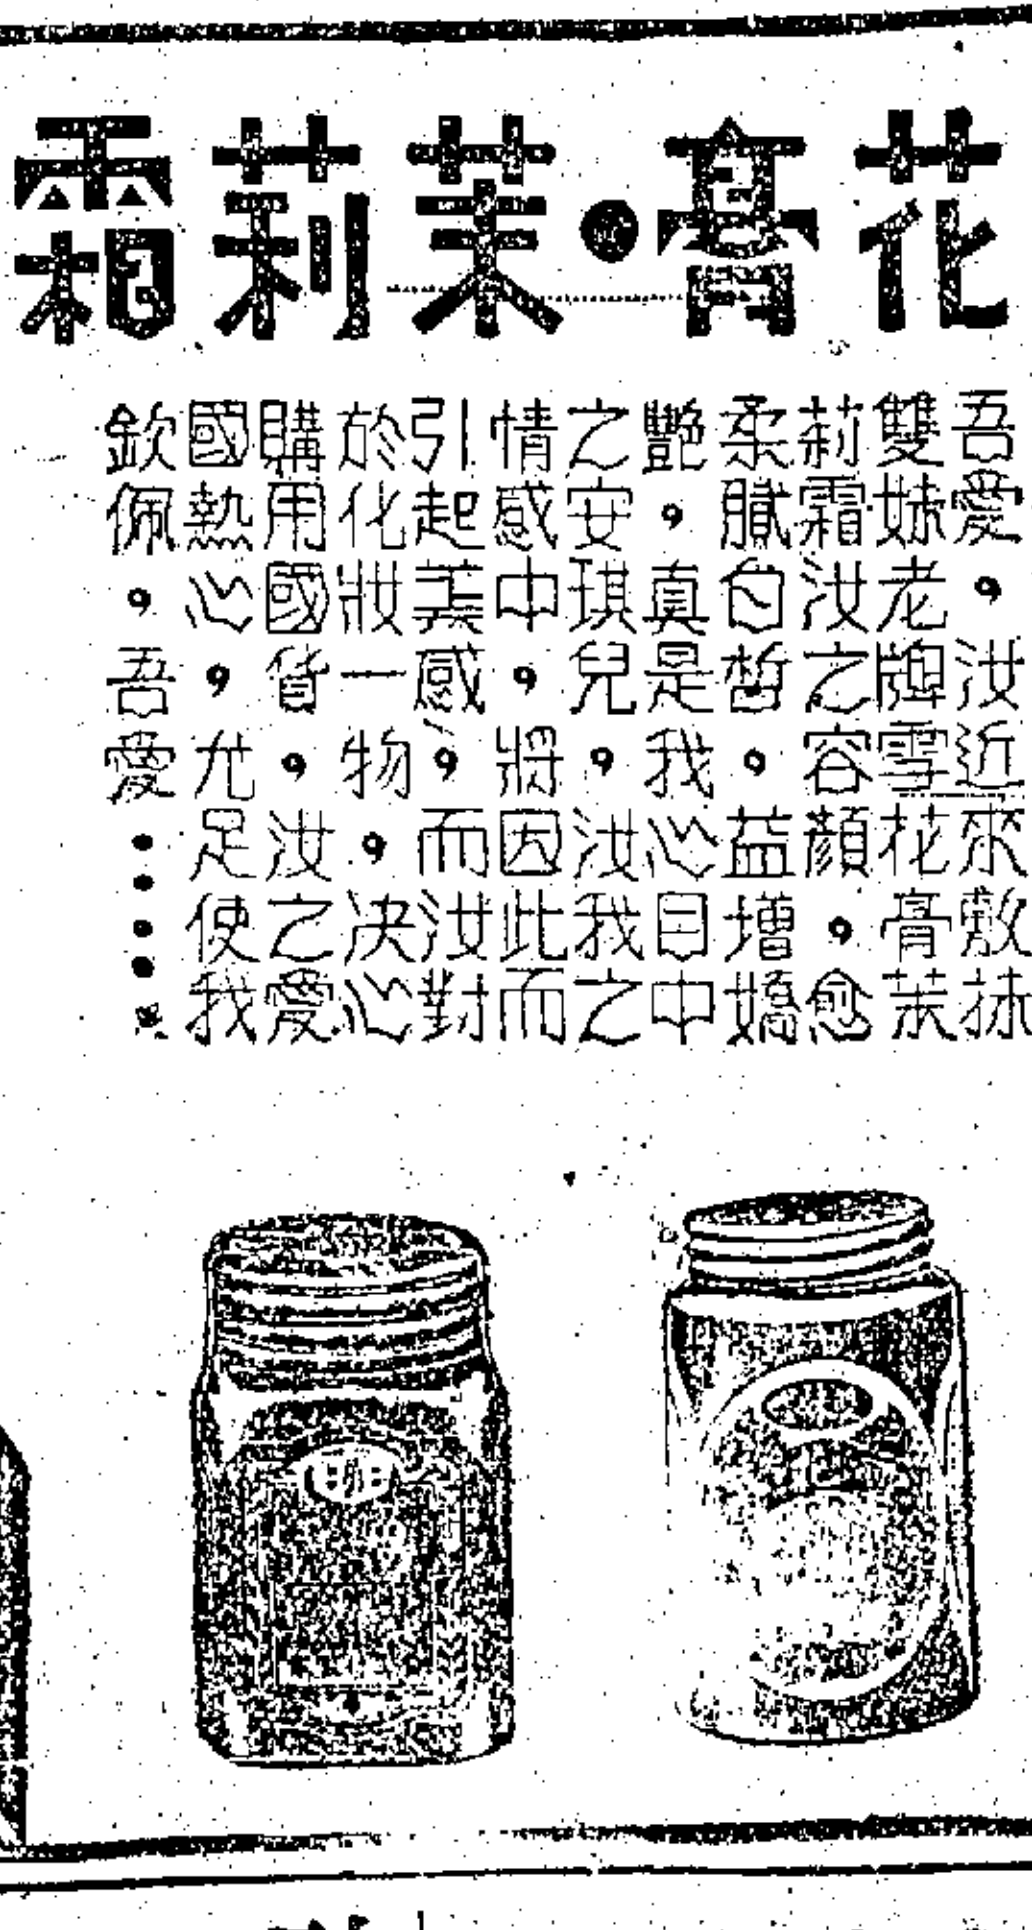 花膏•茉莉霜
吾愛，汝近來敷抹
雙妹老牌雪花膏茉
莉霜汝之容顏，愈
柔膩白皙，益增嬌
艷，真是我心目中
之安琪兒，汝我之
情感中，將因此而
引起美感，而汝對
於化妝一物，决心
購用國貨，汝之愛
國熱心，尤足使我
欽佩，吾愛••••